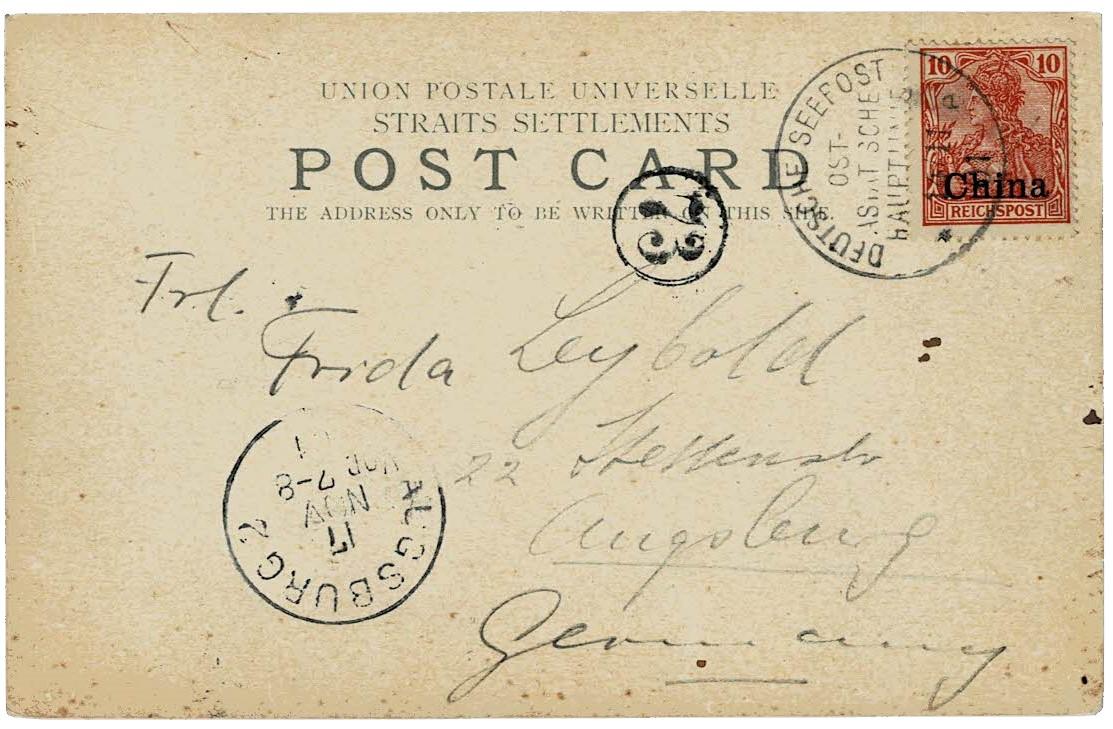 UNION POSTALE UNIVERSELLE
STRAITS SETTLEMENTS
POST CARD
THE ADDRESS ONLY TO BE WRITTEN ON THIS SIDE.
10 10
China
REICHSPOST
DEUTSCHE SEEPOST
OST-
ASIATISCHE
HAUPTLINIE
73
Frl. Frida Leybold
22
Augsburg
Germany
AUGSBURG 2
17
NOV
7-8